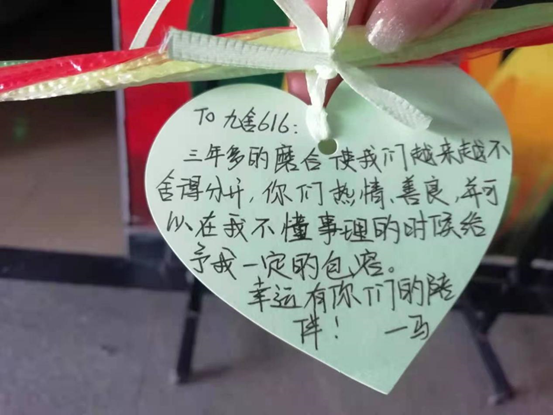 To 九舍616:
三年多的磨合使我们越来越不
舍得分开,你们热情、善良,并可
以在我不懂事理的时候给
予我一定的包容。
幸运有你们的陪
伴! 一马